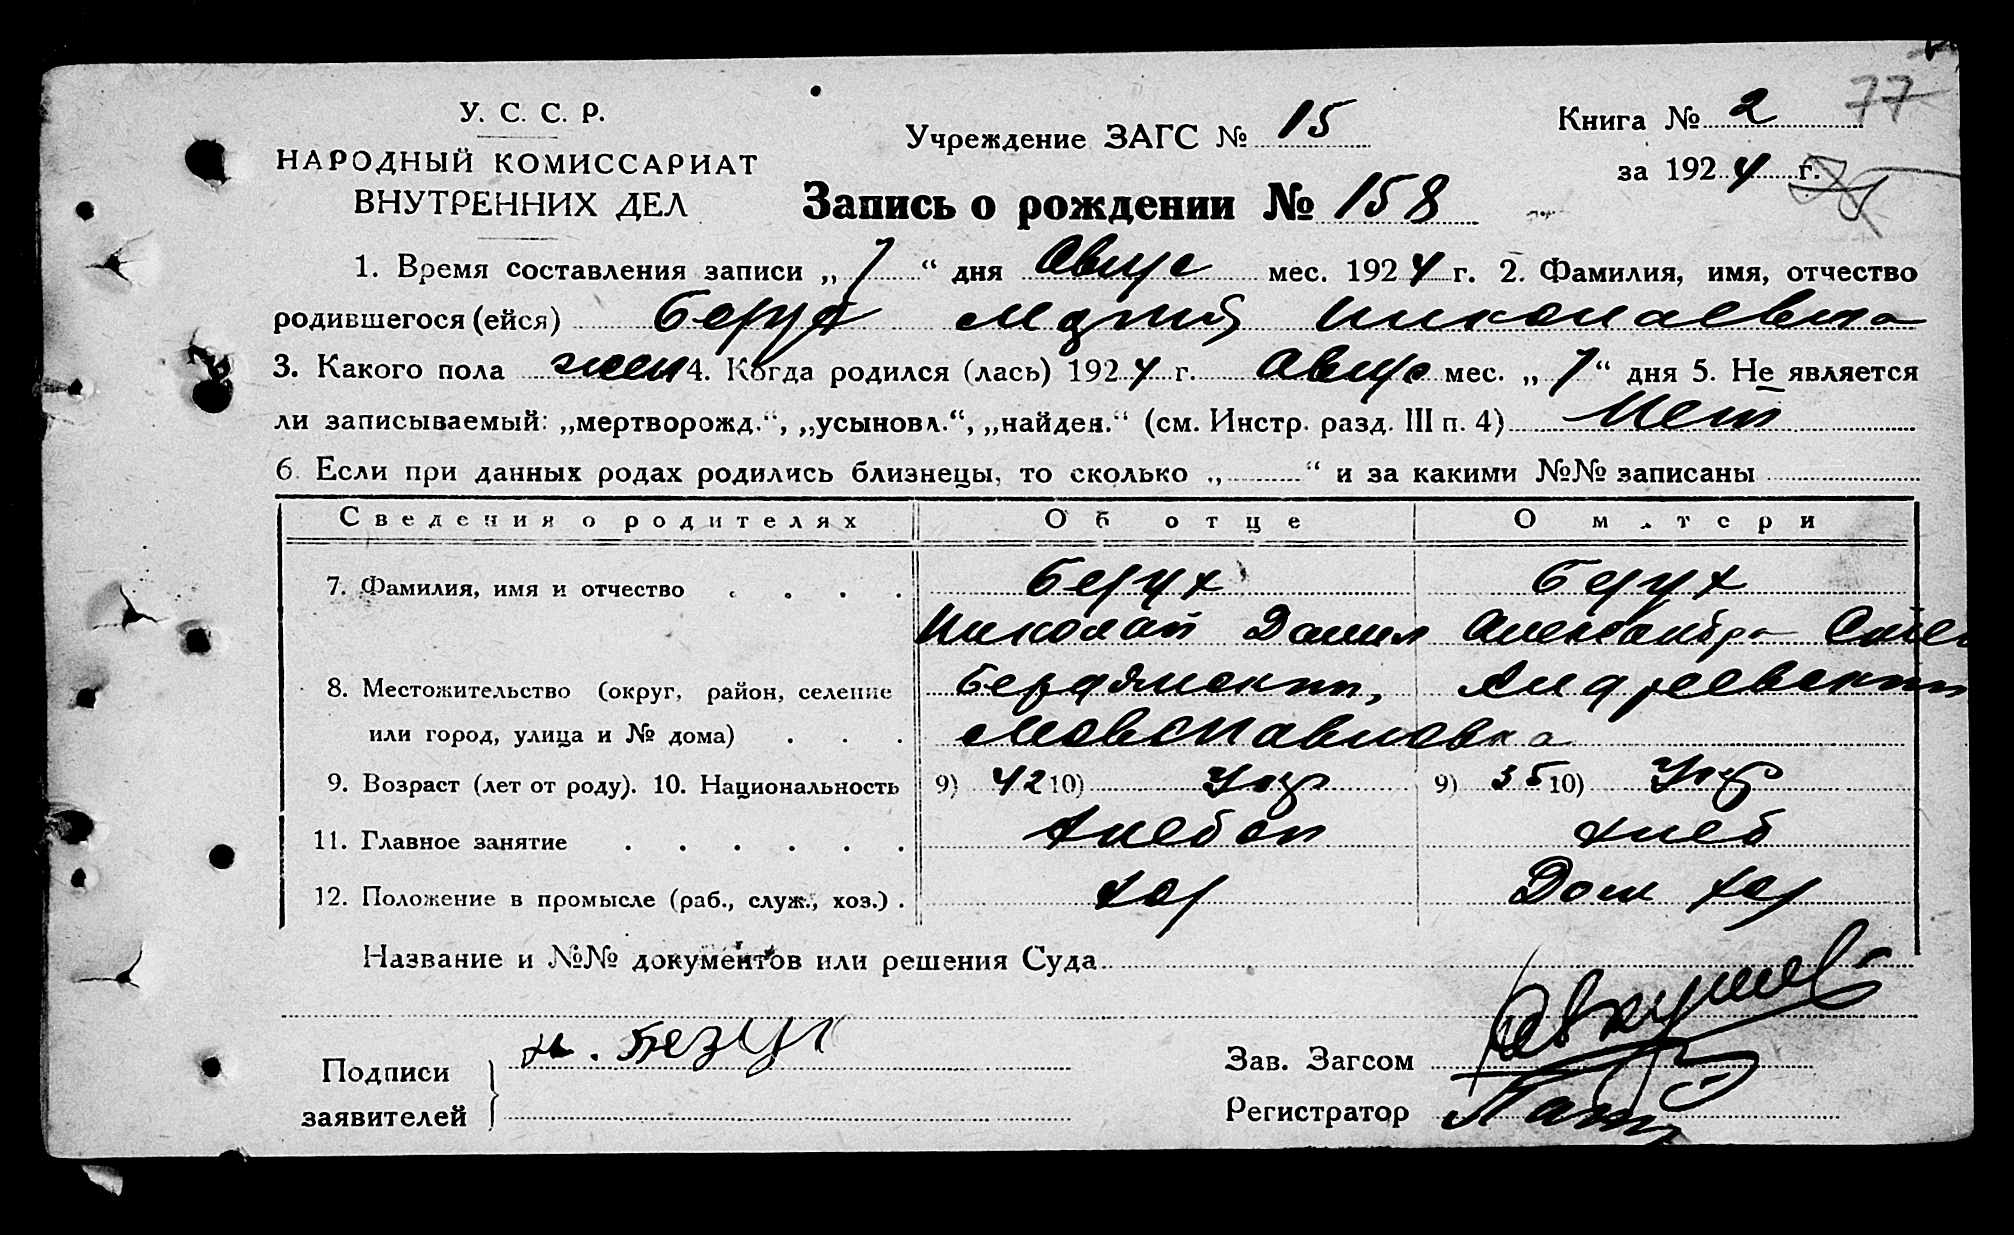 77
У. С. С. Р.
НАРОДНЫЙ КОМИССАРИАТ
ВНУТРЕННИХ ДЕЛ
Учреждение ЗАГС № 15
Книга № 2
за 1924 г.
Запись о рождении № 158
1. Время составления записи „ 7 “ дня Авгус мес. 1924 г. 2. Фамилия, имя, отчество
родившегося (ейся) Мария Николаевна
3. Какого пола жен 4. Когда родился (лась) 1924 г. Авгус мес. „ 7 “ дня 5. Не является
ли записываемый: „мертворожд.“, „усыновл.“, „найден.“ (см. Инстр. разд. III п. 4) Нет
6. Если при данных родах родились близнецы, то сколько „ “ и за какими №№ записаны
Сведения о родителях Об отце О матери
7. Фамилия, имя и отчество
Николай Данил Александра
8. Местожительство (округ, район, селение Бердянский, Андреевский
или город, улица и № дома) Новопавловка
9. Возраст (лет от роду). 10. Национальность 9) 42 10) Укр 9) 35 10) Укр
11. Главное занятие Хлебоп хлеб
12. Положение в промысле (раб., служ., хоз.) . хоз Дом хоз
Название и №№ документов или решения Суда
Подписи
заявителей
Зав. Загсом
Регистратор